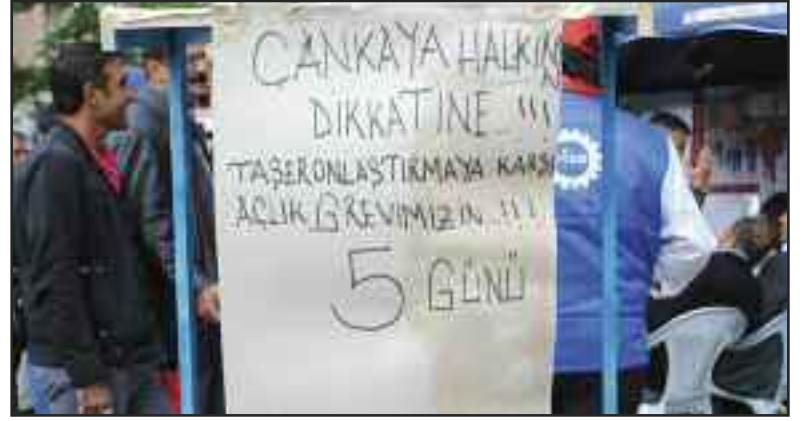 ÇANKAYA HALKIN
DİKKATİNE...!!!
TAŞERONLAŞTIRMAYA KARŞI
AÇLIK GREVİMİZİN...!!!
5 GÜNÜ